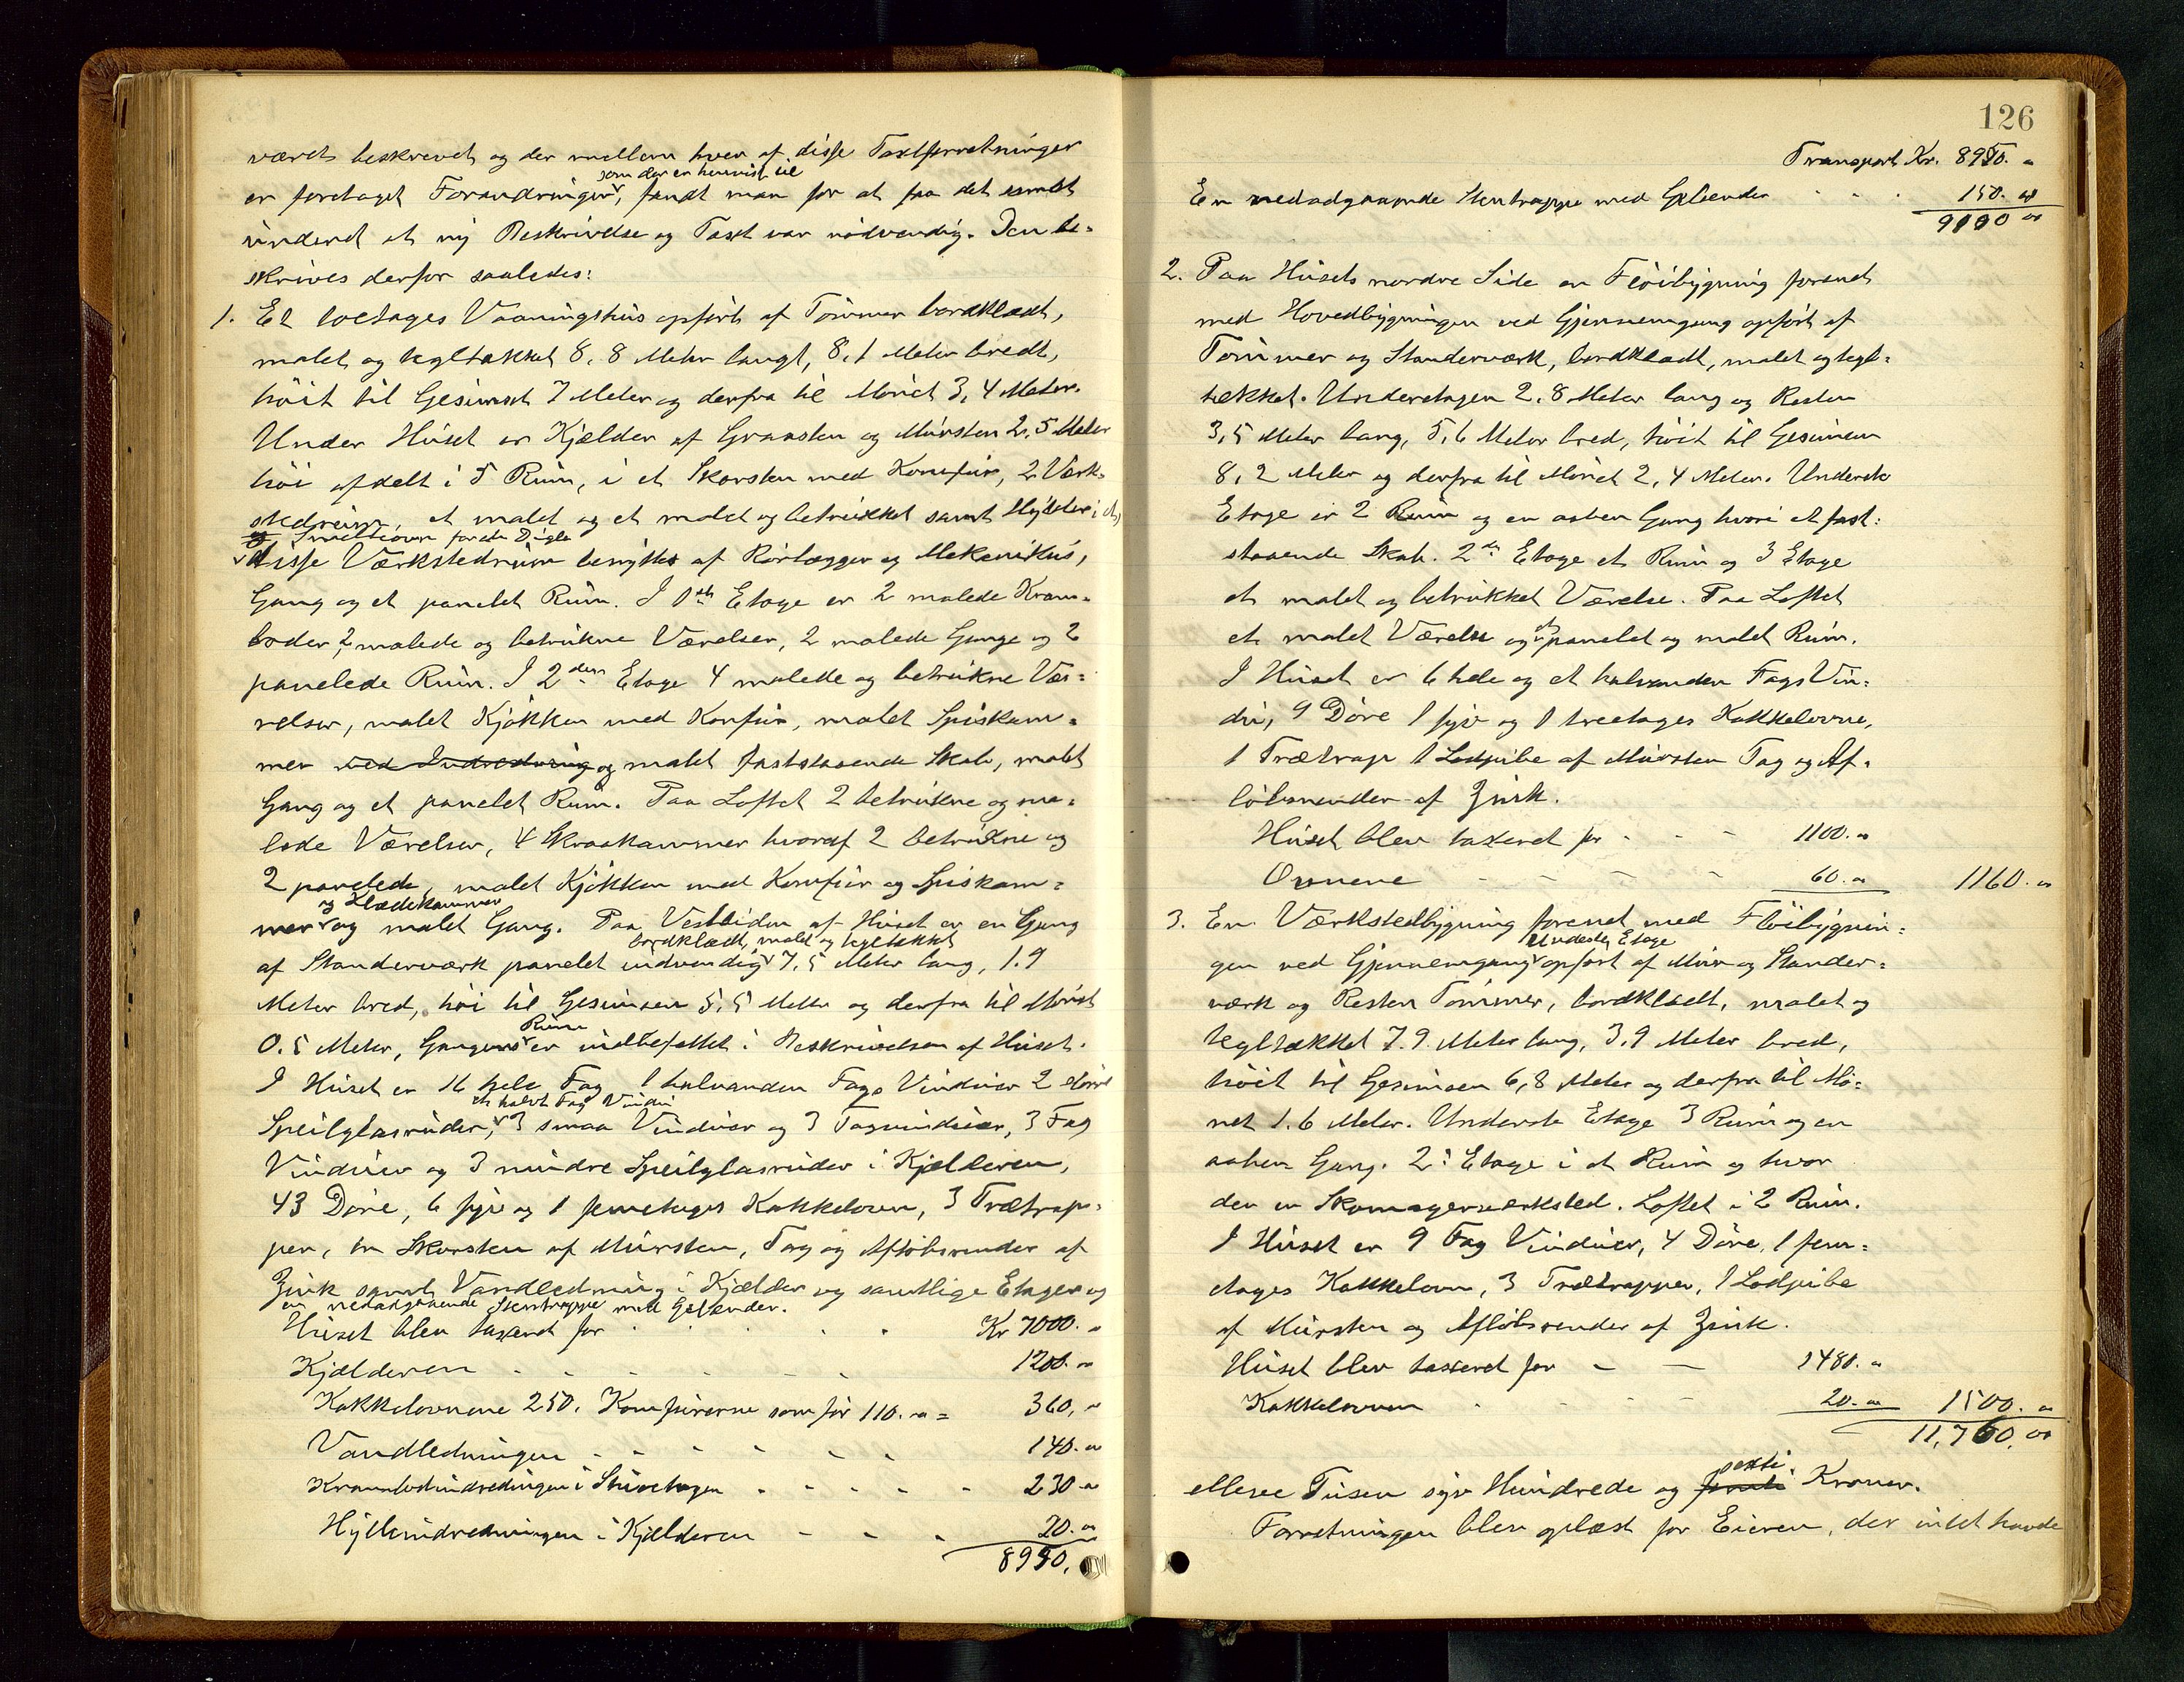 været beskrevet og der mellem hver af disse Taxtforretninger
som der er henvist til
er foretaget Forandringer, fandt man for at faa det samlet
at ny Beskrivelse og Taxt var nødvendig. Den be-
skrives derfor saaledes:
1. Et toetages Vaaningshus opført af Tømmer bordklædt,
malet og tegltækket 8,8 Meter langt, 8,1 Meter bredt,
høit til Gesimset 7 Meter og derfra til Mønet 3,4 Meter.
Under Huset er Kjælder af Graasten og Mursten 2,5 Meter
høi afdelt i 5 Rum, i et Skorsten med Komfur, 2 Værk-
stedrum, et malet og et malet og betrukket samt Hylder i et,
og Smelteovn for en Digle
disse Værkstedrum benyttes af Rørlægger og Mekanikus,
Gang og et panelet Rum. I 1ste Etage er 2 malede Kram-
boder, 2 malede og betrukne Værelser, 2 malede Gange og 2
panelede Rum. I 2den Etage 4 malede og betrukne Væ-
relser, malet Kjøkken med Komfur, malet Spiskam-
mer med Indredning og malet faststaaende Skab, malet
Gang og et panelet Rum. Paa Loftet 2 betrukne og ma-
lede Værelser, 4 Skraakammer hvoraf 2 betrukne og
2 panelede, malet Kjøkken med Komfur og Spiskam-
og Klædekammer
mer og malet Gang. Paa Vestsiden af Huset er en Gang
bordklædt, malet og tegltækket
af Standerværk panelet indvendig 7,5 Meter lang, 1.9
Meter bred, høi til Gesimsen 5,5 Meter og derfra til Mønet
Rum
0.5 Meter, Gangens er indbefattet i Beskrivelsen af Huset.
I Huset er 16 hele Fag 1 halvanden Fags Vinduer 2 større
et halvt Fag Vindu
Speilglasruder, 3 smaa Vinduer og 3 Tagvinduer, 3 Fag
Vinduer og 3 mindre Speilglasruder i Kjælderen,
43 Døre, 6 fyr og 1 femetages Kakkelovn, 3 Trætrap-
per, en Skorsten af Mursten, Tag og Afløbsrender af
Zink samt Vandledning i Kjælder og samtlige Etager og
en nedadgaaende Stentrappe med Gelænder.
Huset blev taxeret for Kr 7000. "
Kjælderen 1200. "
Kakkelovnene 250. Komfurerne som før 110. " = 360, "
Vandledningen 140. "
Krambodindredningen i Stuetagen 230 "
Hylleindredningen i Kjælderen 20. "
8950.
126
Transport Kr. 8950. "
En nedadgaaende Stentrappe med Gelænder 150. "
9100 "
2. Paa Husets nordre Side en Fløibygning forenet
med Hovedbygningen ved Gjennemgang opført af
Tømmer og Standerværk, bordklædt, malet og tegl-
tækket. Underetagen 2,8 Meter lang og Resten
3,5 Meter lang, 5,6 Meter bred, høit til Gesimsen
8,2 Meter og derfra til Mønet 2,4 Meter. Underste
Etage er 2 Rum og en aaben Gang hvori et fast-
staaende Skab. 2den Etage et Rum og 3 Etage
et malet og betrukket Værelse. Paa Loftet
et malet Værelse og et panelet og malet Rum.
I Huset er 6 hele og et halvanden Fags Vin-
du, 9 Døre 1 fyr og 1 treetages Kakkelovne,
1 Trætrap 1 Lodpibe af Mursten Tag og Af-
løbsrender af Zink.
Huset blev taxeret for 1100. "
Ovnene 60. " 1160. "
3. En Værkstedbygning forenet med Fløibygnin-
Underste Etage
gen ved Gjennemgang opført af Mur og Stander-
værk og Resten Tømmer, bordklædt, malet og
tegltækket 7.9 Meter lang, 3,9 Meter bred,
høit til Gesimsen 6,8 Meter og derfra til Mø-
net 1.6 Meter. Underste Etage 3 Rum og en
aaben Gang. 2: Etage i et Rum og hvor
der er Skomagerværksted. Loftet i 2 Rum.
I Huset er 9 Fag Vinduer, 4 Døre, 1 fem-
etages Kakkelovn, 3 Trætrapper, 1 Lodpibe
af Mursten og Afløbsrender af Zink.
Huset blev taxeret for 1480. "
Kakkelovnen 20. " 1500. "
11,760. "
seksti
elleve Tusen syv Hundrede og Kroner.
Forretningen blev oplæst for Eieren, der intet havde